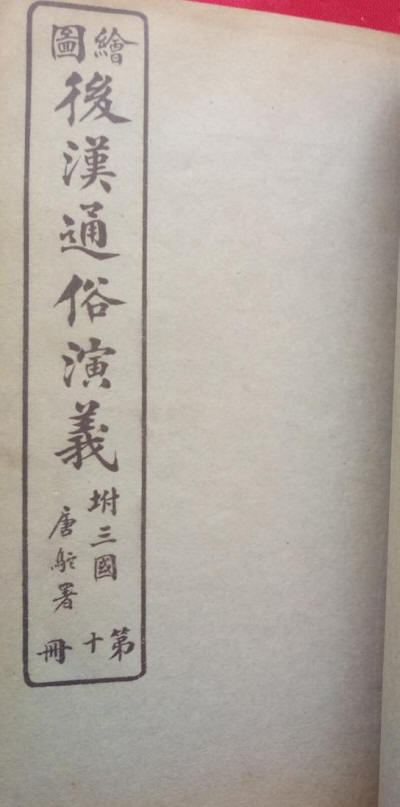 繪圖
後漢通俗演義
坿三國
唐駝署
第十冊